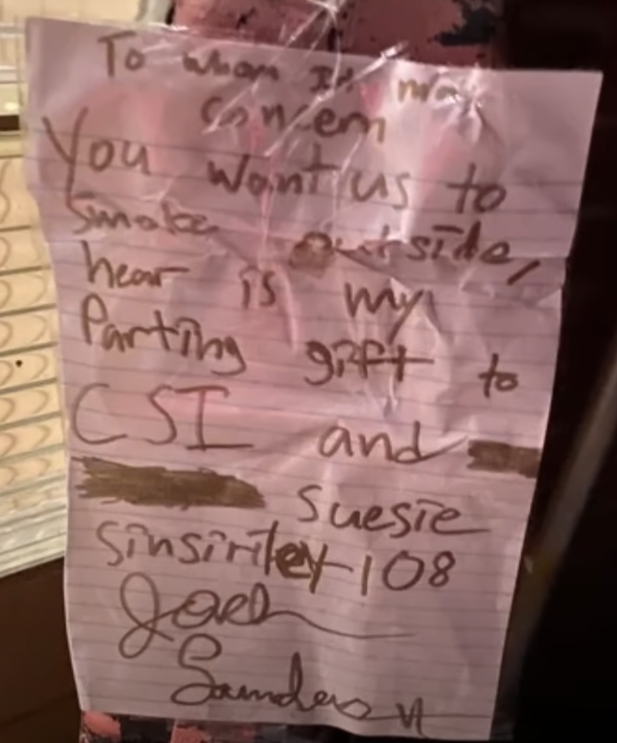 To whom It may
Concern
You want us to
Smoke outside,
hear is my
Parting gift to
CSI and
Suesie
Sinsiriley 108
Joel
Saunders